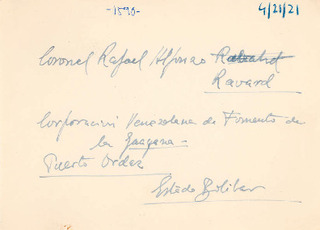 -1590-
4/21/21
Coronel Rafael Alfonso
Ravard
Corporación Venezolana de Fomento de
la Guayana -
Puerto Ordaz
Estado Bolívar